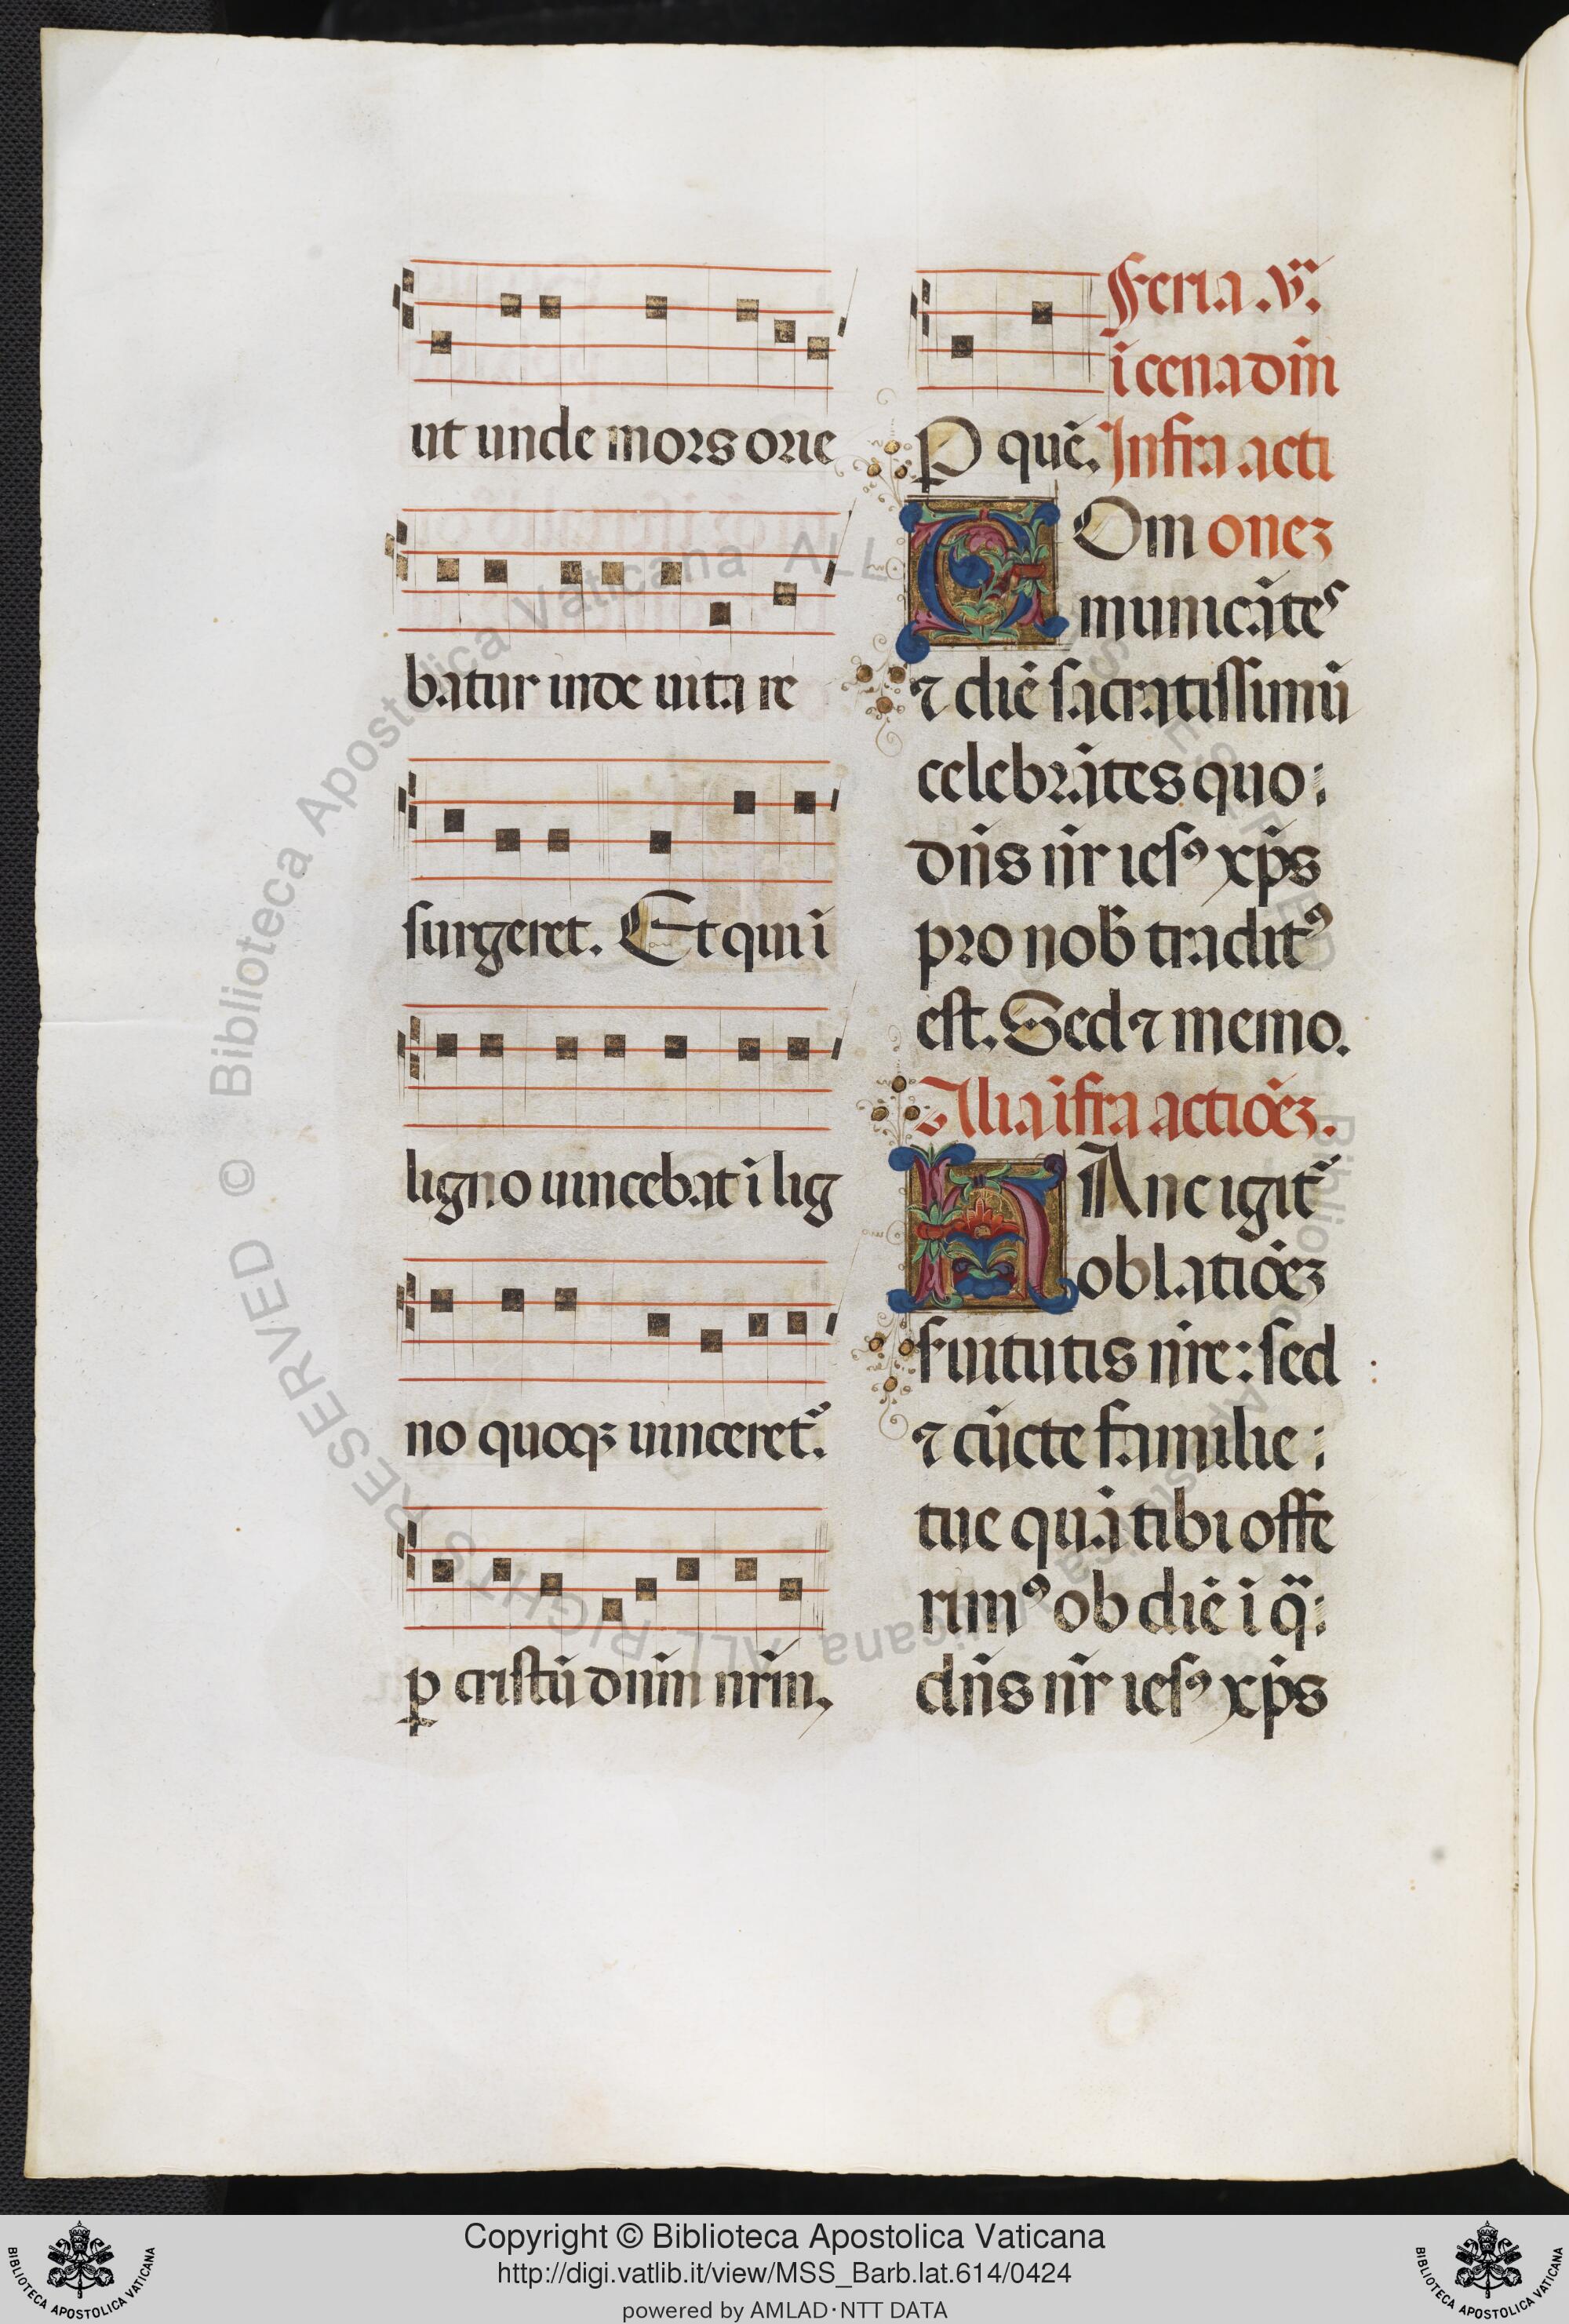 ut unde mors orie
batur inde uita re
surgeret. Et qui ī
ligno uincebat ī lig
no quoqꝫ uinceret᷑.
ꝑ cristū dn̄m nr̄m,
Feria .v.
ī cena dn̄i
P quē. Infra acti
COm onez
municātes
⁊ diē sacratissimū
celebrātes quo:
dn̄s nr̄ iesꝰ xp̄s
pro nob̄ traditꝰ
est. Sed ⁊ memo.
Alia īfra actiōez.
HAnc igit᷑
oblatiōez
s̄uitutis nr̄e: sed
⁊ cūcte familie:
tue quā tibi offe
rimꝰ ob diē ī q̄:
dn̄s nr̄ iesꝰ xp̄s
© Biblioteca Apostolica Vaticana ALL RIGHTS RESERVED
Copyright © Biblioteca Apostolica Vaticana
http://digi.vatlib.it/view/MSS_Barb.lat.614/0424
powered by AMLAD·NTT DATA
BIBLIOTECA APOSTOLICA VATICANA
BIBLIOTECA APOSTOLICA VATICANA